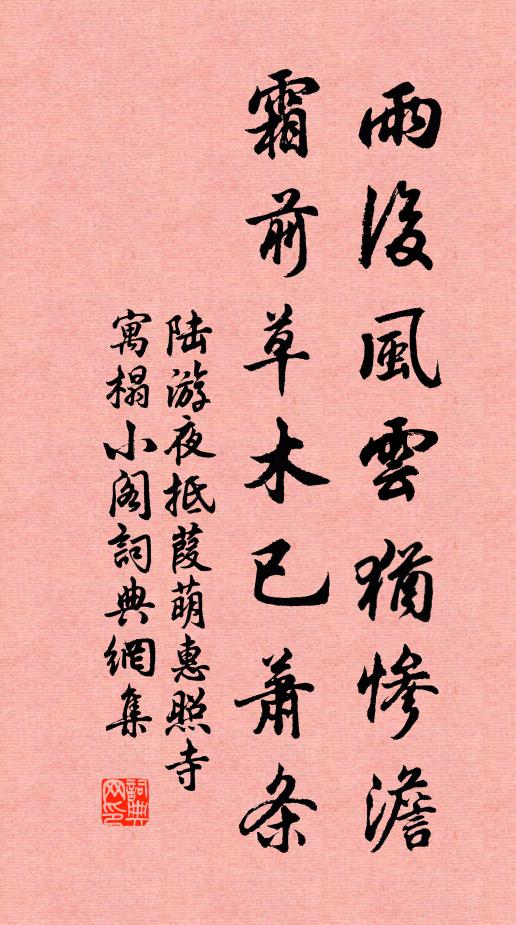 雨後風雲猶慘澹
霜前草木已蕭条
陆游夜抵葭萌惠照寺
寓榻小阁詞典網集
詞典
网印